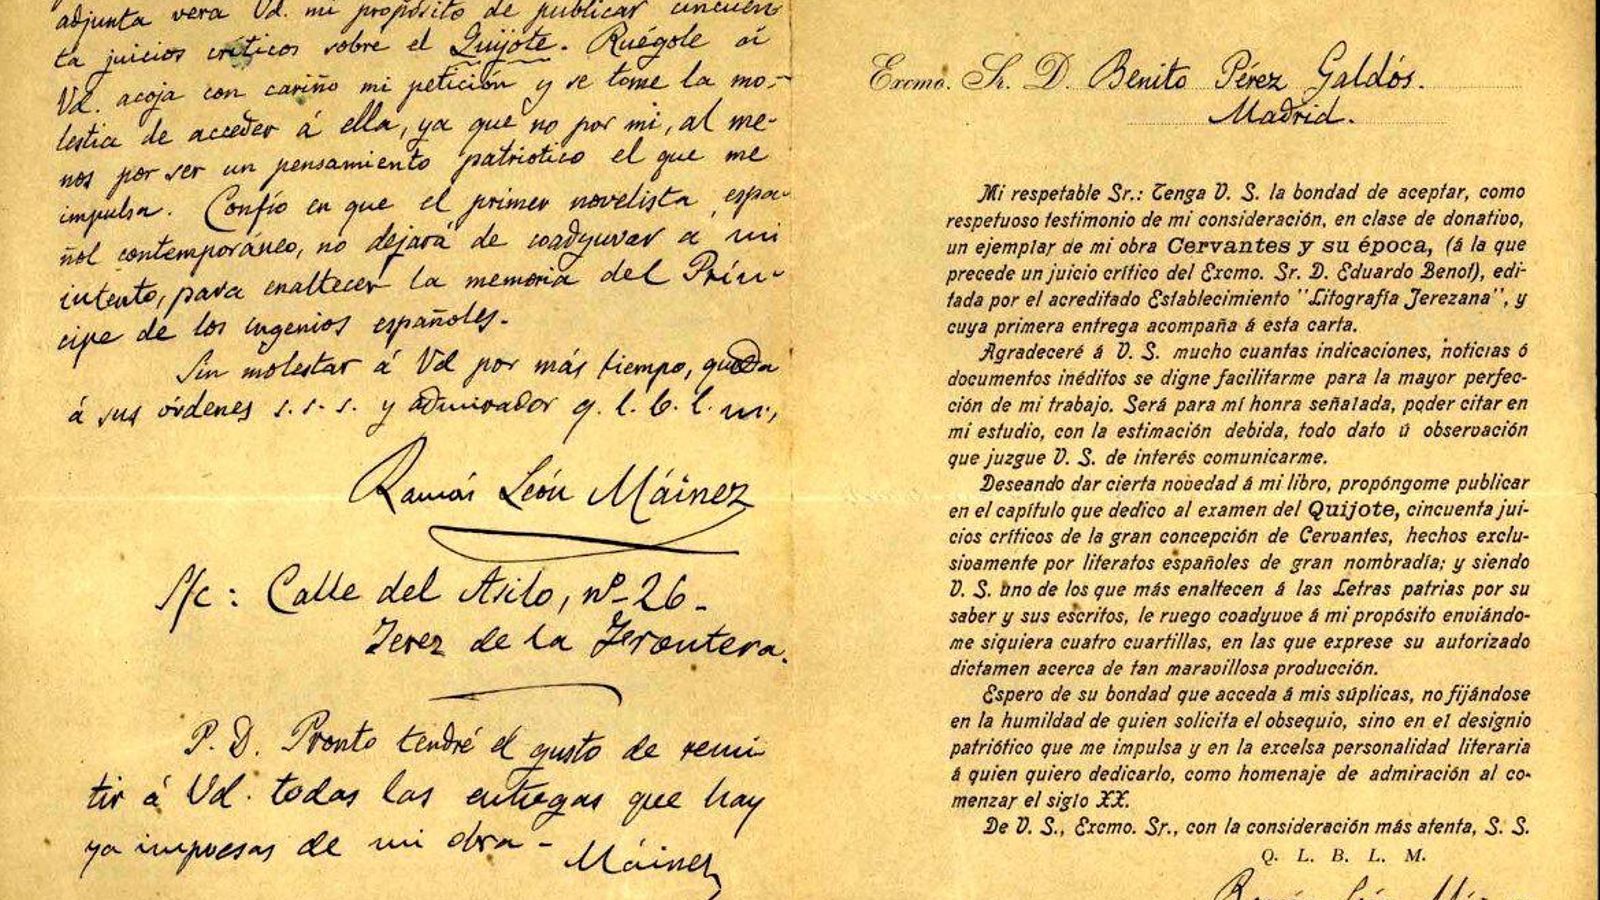 adjunta verá Vd. mi propósito de publicar cincuen-
ta juicios críticos sobre el Quijote. Ruégole ái
Vd. acoja con cariño mi petición y se tome la mo-
lestia de acceder á ella, ya que no por mi, al me-
nos por ser un pensamiento patriótico el que me
impulsa. Confío en que el primer novelista espa-
ñol contemporáneo, no dejará de coadyuvar a mi
intento, para enaltecer la memoria del Prín-
cipe de los ingenios españoles.
Sin molestar á Vd por más tiempo, queda
á sus órdenes s. s. s. y admirador q. l. b. l. m.,
Ramón León Máinez
S/c: Calle del Asilo, nº 26.
Jerez de la Frontera.
P. D. Pronto tendré el gusto de remi
tir á Vd. todas las entregas que hay
ya impresas de mi obra-
Máinez
Excmo. Sr. D. Benito Pérez Galdós.
Madrid.
Mi respetable Sr.: Tenga V. S. la bondad de aceptar, como
respetuoso testimonio de mi consideración, en clase de donativo,
un ejemplar de mi obra Cervantes y su época, (á la que
precede un juicio crítico del Excmo. Sr. D. Eduardo Benot), edi-
tada por el acreditado Establecimiento "Litografía Jerezana", y
cuya primera entrega acompaña á esta carta.
Agradeceré á V. S. mucho cuantas indicaciones, noticias ó
documentos inéditos se digne facilitarme para la mayor perfec-
ción de mi trabajo. Será para mí honra señalada, poder citar en
mi estudio, con la estimación debida, todo dato ú observación
que juzgue V. S. de interés comunicarme.
Deseando dar cierta novedad á mi libro, propóngome publicar
en el capítulo que dedico al examen del Quijote, cincuenta jui-
cios críticos de la gran concepción de Cervantes, hechos exclu-
sivamente por literatos españoles de gran nombradía; y siendo
V. S. uno de los que más enaltecen á las Letras patrias por su
saber y sus escritos, le ruego coadyuve á mi propósito enviándo-
me siquiera cuatro cuartillas, en las que exprese su autorizado
dictamen acerca de tan maravillosa producción.
Espero de su bondad que acceda á mis súplicas, no fijándose
en la humildad de quien solicita el obsequio, sino en el designio
patriótico que me impulsa y en la excelsa personalidad literaria
á quien quiero dedicarlo, como homenaje de admiración al co-
menzar el siglo XX.
De V. S., Excmo. Sr., con la consideración más atenta, S. S.
Q. L. B. L. M.
Ramón León Máinez